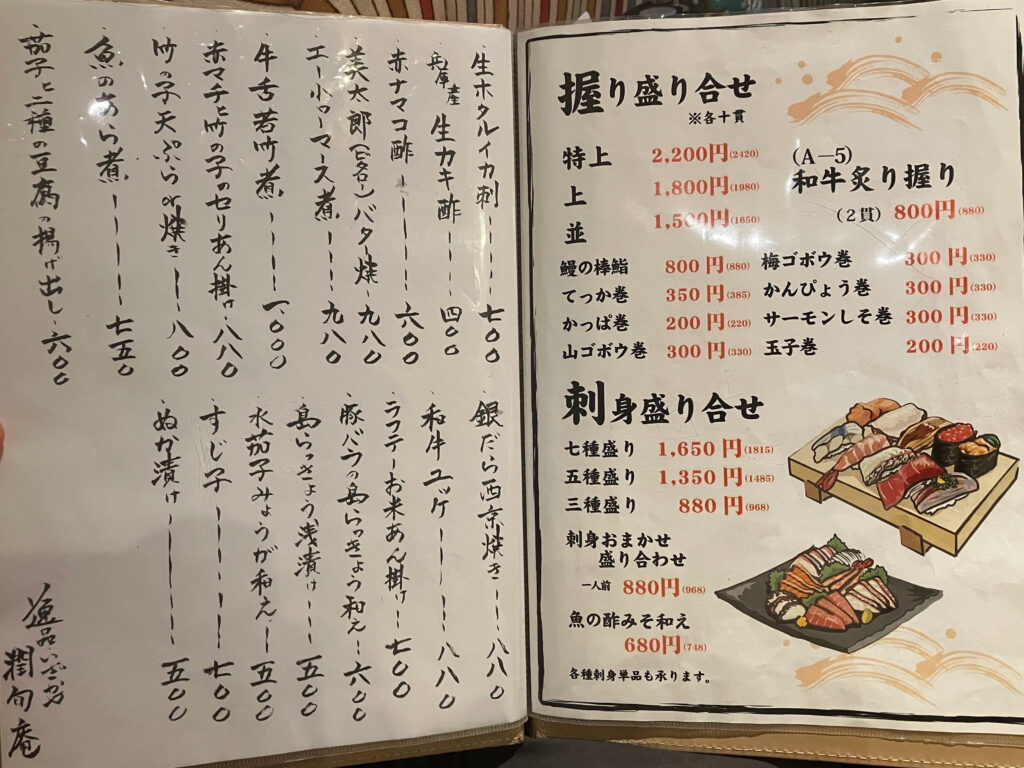 生ホタルイカ刺 七〇〇
兵庫産 生カキ酢 四〇〇
赤ナマコ酢 六〇〇
美太郎(ヒタロー)バター焼 九八〇
牛舌若竹煮 一、〇〇〇
赤マチと竹の子のセリあん掛け 八八〇
竹の子天ぷらor焼き 八〇〇
魚のあら煮 七五〇
茄子と二種の豆腐の揚げ出し 六〇〇
銀だら西京焼き 八八〇
和牛ユッケ 八八〇
ラフテーお米あん掛け 七〇〇
豚バラの島らっきょう和え 六〇〇
島らっきょう浅漬け 五〇〇
水茄子みょうが和え 五〇〇
すじ子 七〇〇
ぬか漬け 五〇〇
握り盛り合せ
※各十貫
特上 2,200円(2420)
上 1,800円(1980)
並 1,500円(1650)
(A−5)
和牛炙り握り
(2貫) 800円(880)
鰻の棒鮨 800円(880)
てっか巻 350円(385)
かっぱ巻 200円(220)
山ゴボウ巻 300円(330)
梅ゴボウ巻 300円(330)
かんぴょう巻 300円(330)
サーモンしそ巻 300円(330)
玉子巻 200円(220)
刺身盛り合せ
七種盛り 1,650円(1815)
五種盛り 1,350円(1485)
三種盛り 880円(968)
刺身おまかせ
盛り合わせ
一人前 880円(968)
魚の酢みそ和え
680円(748)
各種刺身単品も承ります。